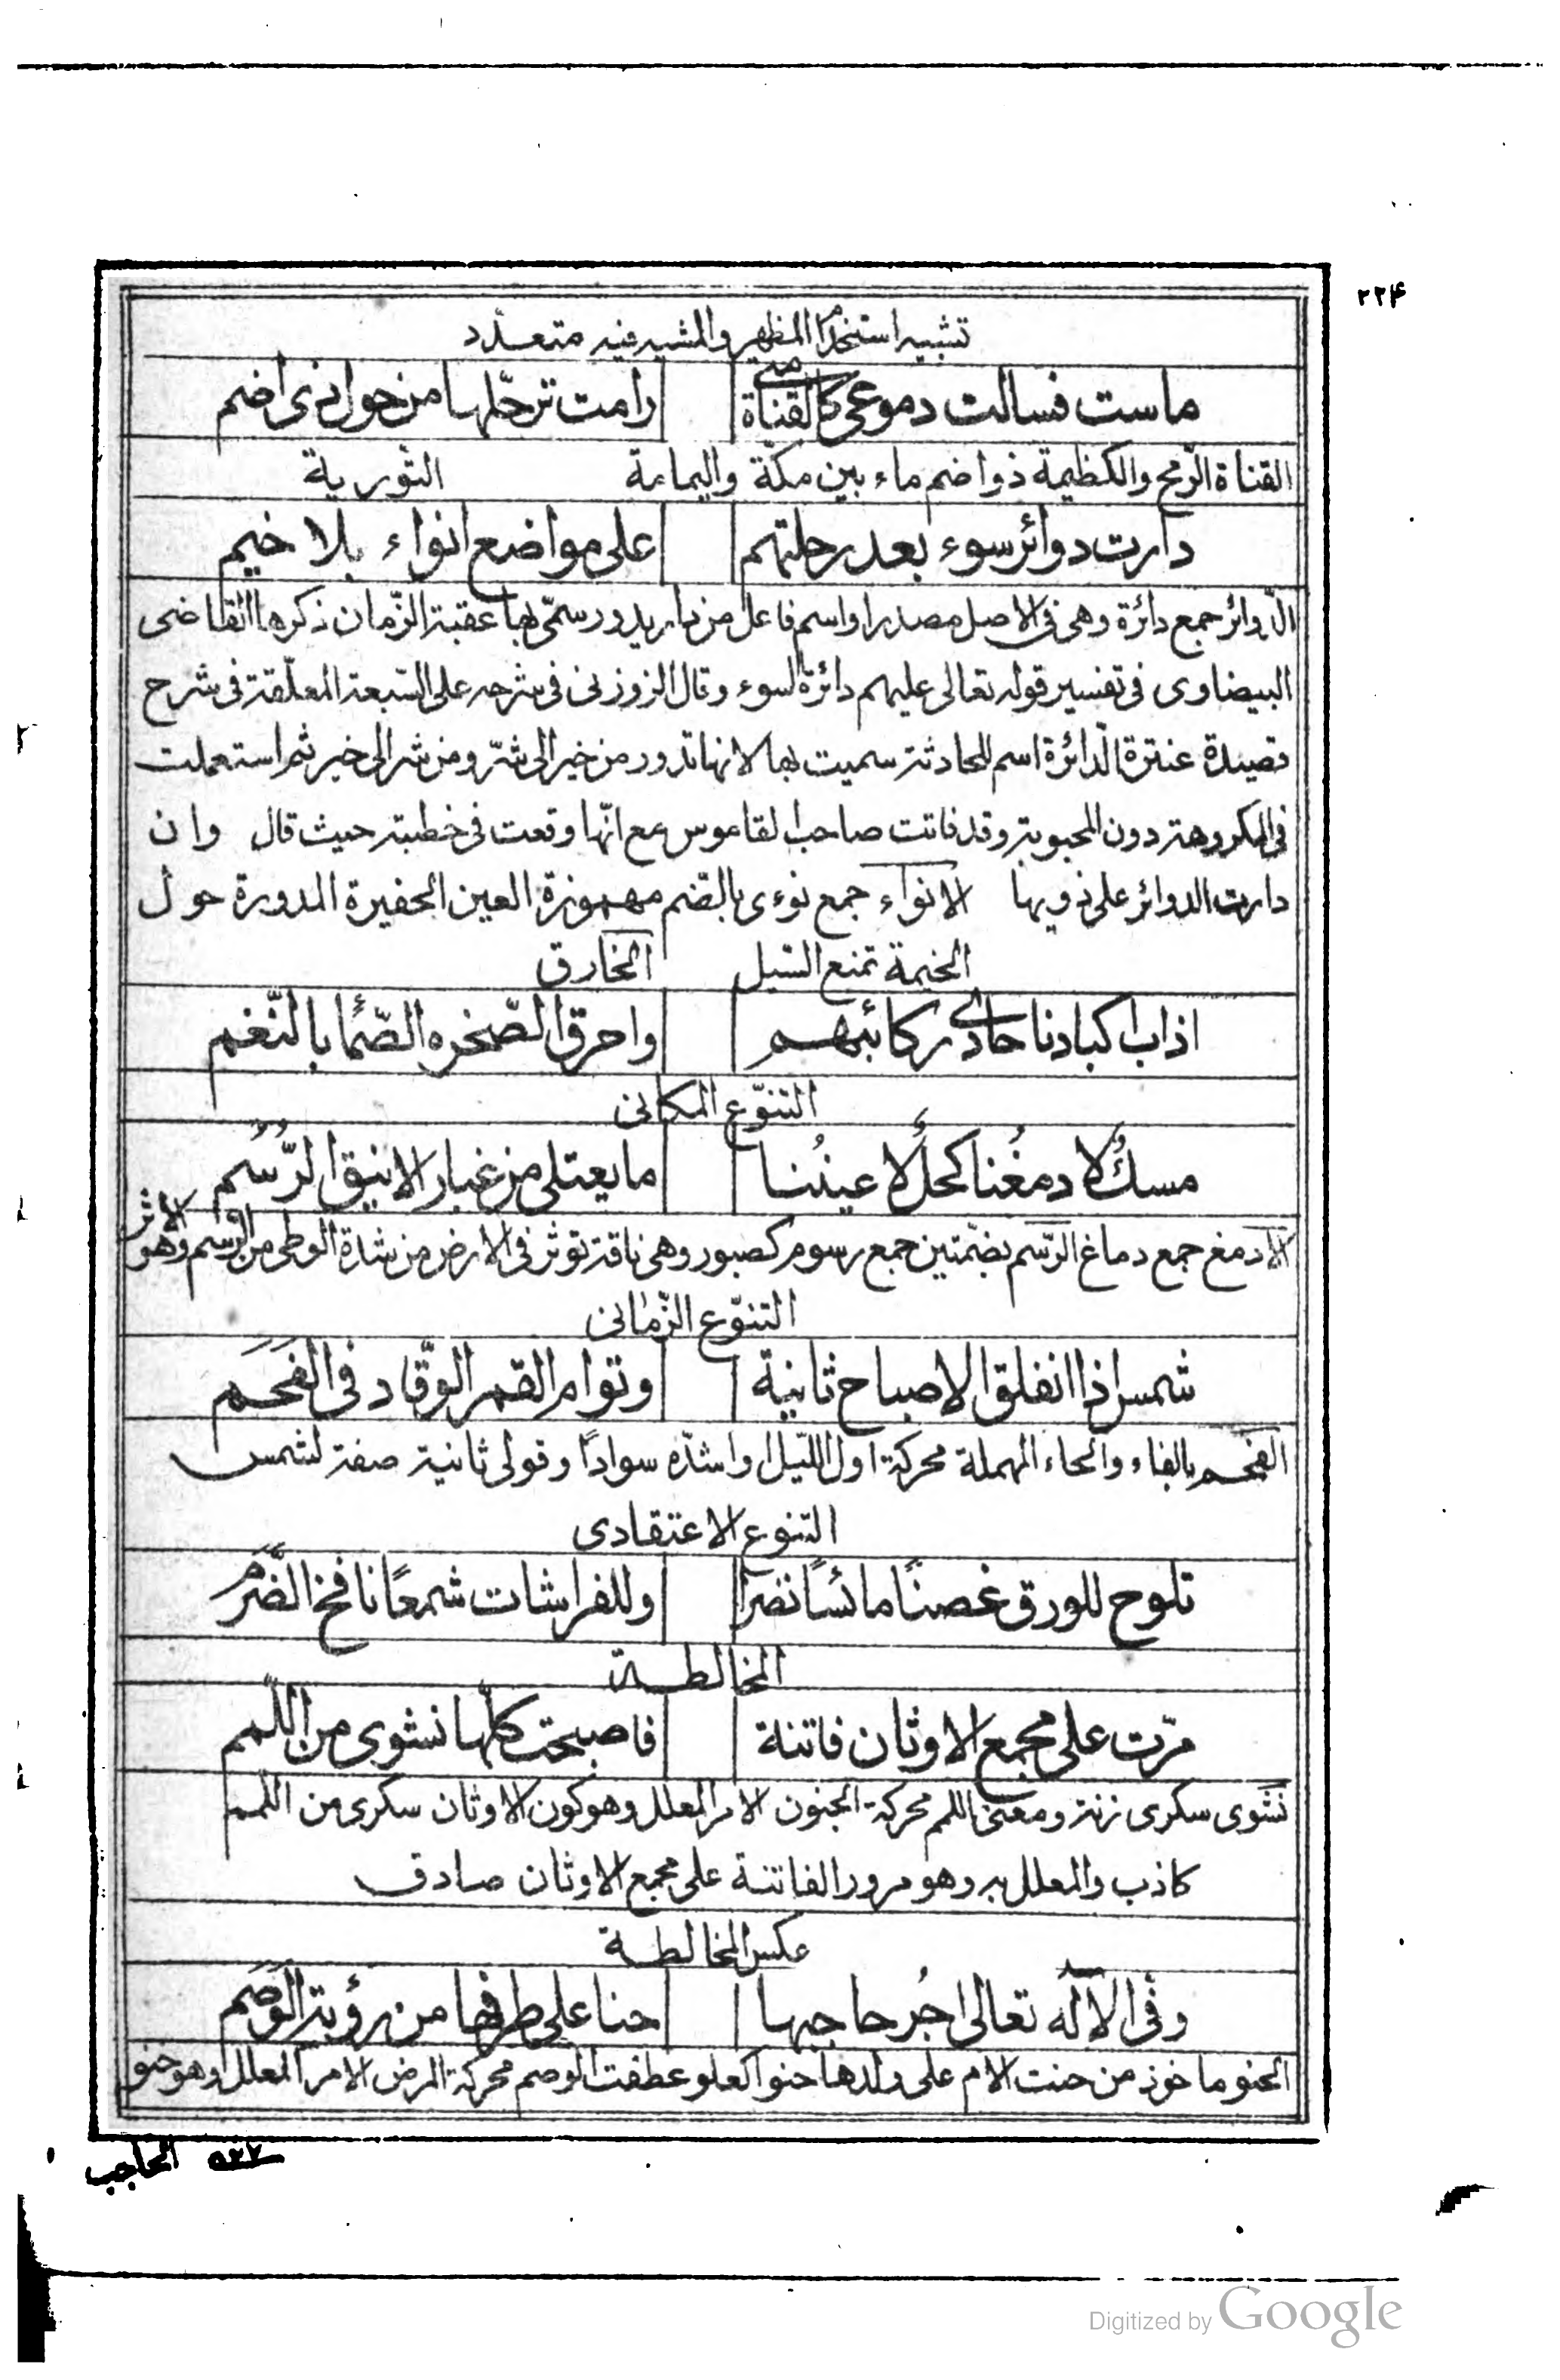 ۲۲۴
تشبيه استخدام المظهر والمشبه فيه متعدّد
ماست فسالت دموعى كالقناة متى رامت ترحّلها من حول ذى اضم
القناة الرّمح والكظيمة ذو اضم ماء بين مكّة واليمامة التّورية
دارت دوائر سوء بعد رحلتهم على مواضع انواء بلا خيم
الدّوائر جمع دائرة وهى فى الاصل مصدر او اسم فاعل من دار يدور سمّى بها عقبة الزّمان ذكرها القاضى
البيضاوى فى تفسير قوله تعالى عليهم دائرة السوء وقال الزوزنى فى شرحه على السّبعة المعلّقة فى شرح
قصيدة عنترة الدّائرة اسم للحادثة سميت بها لانها تدور من خير الى شرّ ومن شر الى خير ثم استعملت
فى المكروهة دون المحبوبة وقد فاتت صاحب القاموس مع انّها وقعت فى خطبته حيث قال وان
دارت الدوائر على ذويها الانواء جمع نوءى بالضّم مهموزة العين الحفيرة المدورة حول
الخيمة تمنع السّيل الخارق
اذاب اكبادنا حادى ركائبهم واحرق الصّخره الصّمّا بالنّغم
التنوّع المكانى
مسكٌ لادمغنا كحلٌ لاعيننا ما يعتلى من غبار الانيق الرُّسُم
الادمغ جمع دماغ الرّسم بضمّتين جمع رسوم كصبور وهى ناقة توثر فى الارض من شدة الوطى من الرسم وهو الاثر
التنوّع الزّمانى
شمس اذا انفلق الاصباح ثانية وتوام القمر الوقّاد فى الفَحَم
الفحم بالفاء والحاء المهملة محركة اول اللّيل او اشدّه سوادًا وقولى ثانية صفة لشمس
التنوع الاعتقادى
تلوح للورق غصنًا مائسًا نضرا وللفراشات شمعًا نافخ الضَّرَم
المخالطة
مرّت على مجمع الاوثان فاتنة فاصبحت كلّها نشوى من اللّمم
نَشوى سكرى زنة ومعنى اللمم محركة الجنون الامر المعلل وهو كون الاوثان سكرى من اللّمم
كاذب والمعلل به وهو مرور الفاتنة على مجمع الاوثان صادق
عكس المخالطة
وفّى الاله تعالى اجر حاجبها حنا على طرفها من رؤية الوَصَم
الحنو ماخوذ من حنت الام على ولدها حنوا كعلو عطفت الوصم محركة المرض الامر المعلل وهو حنو
الحاجب
Digitized by Google